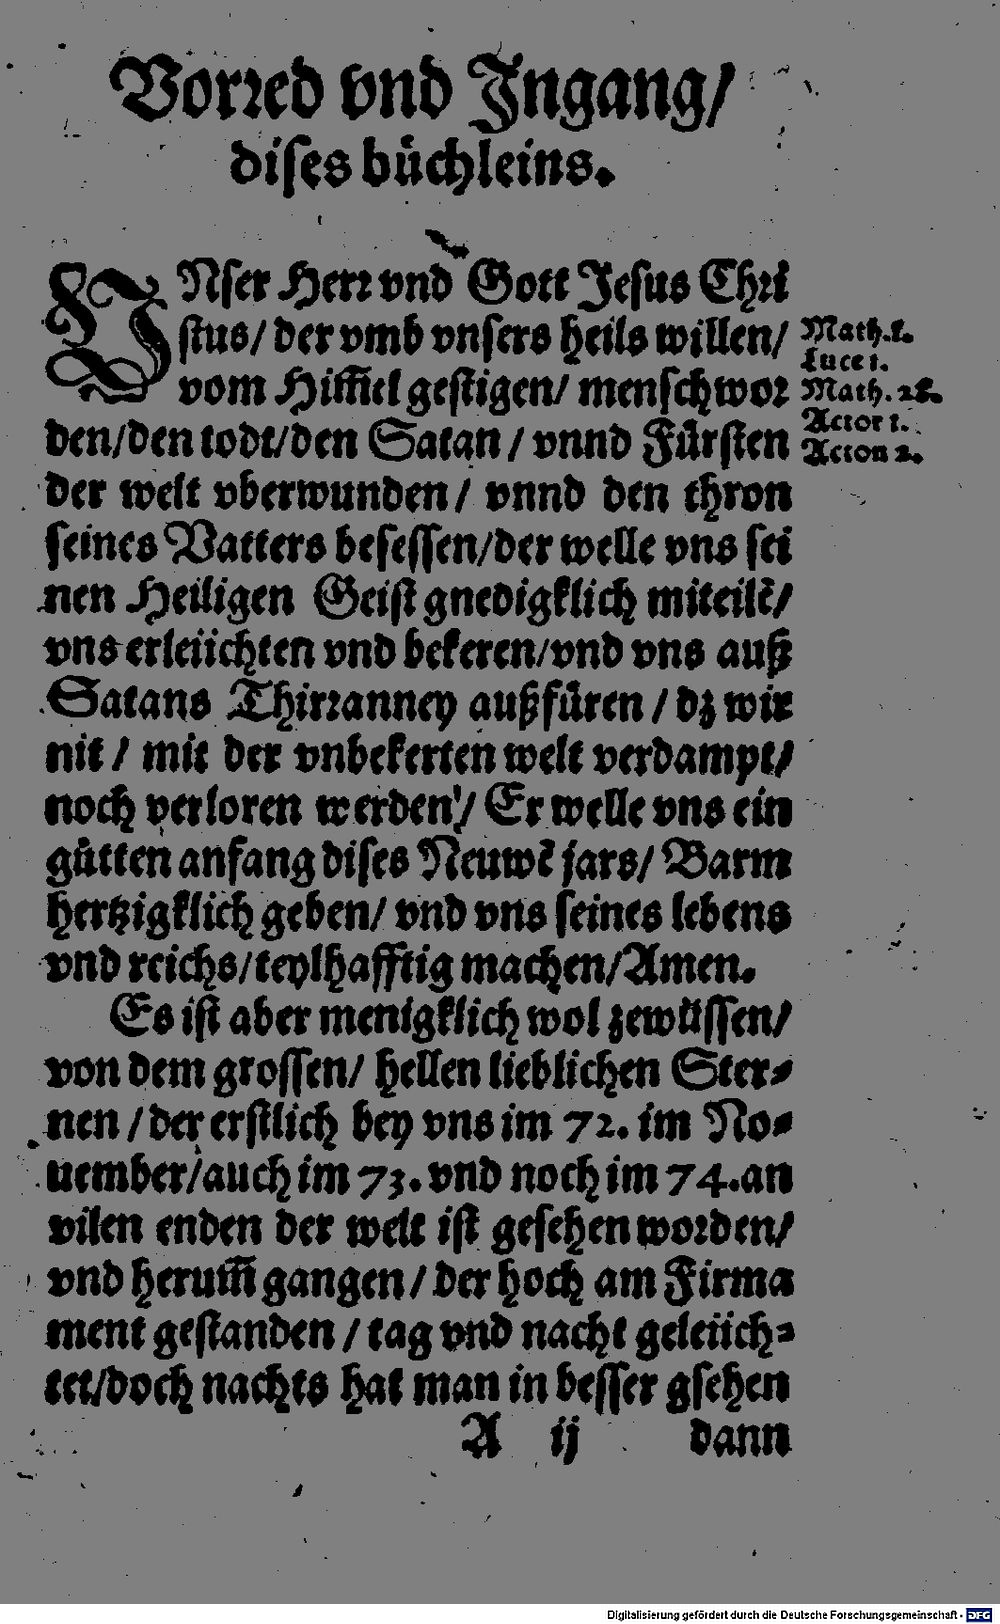 Vorred vnd Jngang/
dises büchleins.
VNser Herr vnd Gott Jesus Chri
stus/ der vmb vnsers heils willen/
vom Him̃el gestigen/ mensch wor
den/den todt/den Satan / vnnd Fürsten
der welt vberwunden / vnnd den thron
seines Vatters besessen/der welle vns sei
nen Heiligen Geist gnedigklich miteilẽ/
vns erleüchten vnd bekeren/vnd vns auß
Satans Thirranney außfüren / dz wir
nit / mit der vnbekerten welt verdampt/
noch verloren werden/ Er welle vns ein
gůtten anfang dises Neuwẽ jars/ Barm
hertzigklich geben/ vnd vns seines lebens
vnd reichs/teylhafftig machen/Amen.
Es ist aber menigklich wol zewüssen/
von dem grossen/ hellen lieblichen Ster⸗
nen / der erstlich bey vns im 72. im No⸗
uember/auch im 73. vnd noch im 74. an
vilen enden der welt ist gesehen worden/
vnd herum̃ gangen / der hoch am Firma
ment gestanden / tag vnd nacht geleüch⸗
tet/doch nachts hat man in besser gsehen
A ij dann
Math.
Luce 1.
Math. 28.
Actor 1.
Acton 2.
Digitalisierung gefördert durch die Deutsche Forschungsgemeinschaft - DFG